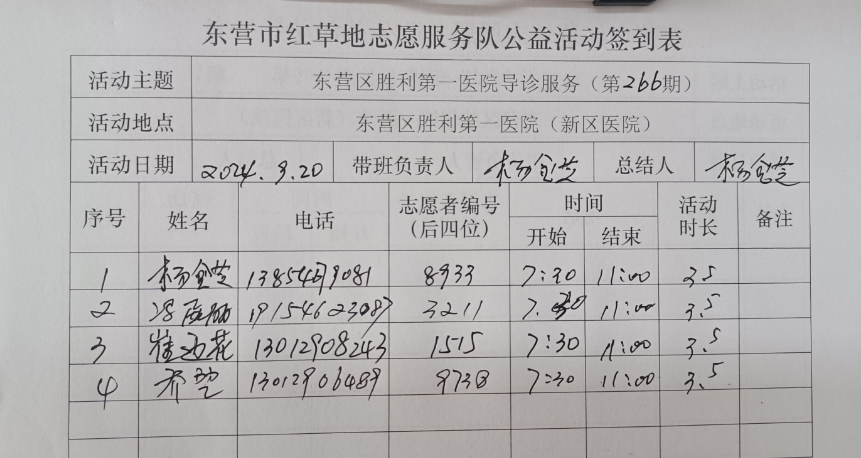 东营市红草地志愿服务队公益活动签到表
活动主题 东营区胜利第一医院导诊服务（第266期）
活动地点 东营区胜利第一医院（新区医院）
活动日期 2024.9.20 带班负责人 杨金芝 总结人 杨金芝
序号 姓名 电话 志愿者编号（后四位） 时间 活动时长 备注
开始 结束
1 杨金芝 8933 7:30 11:00 3.5
2 19154623087 3211 7:30 11:00 3.5
3 13012908243 1515 7:30 11:00 3.5
4 13012906489 7:30 11:00 3.5